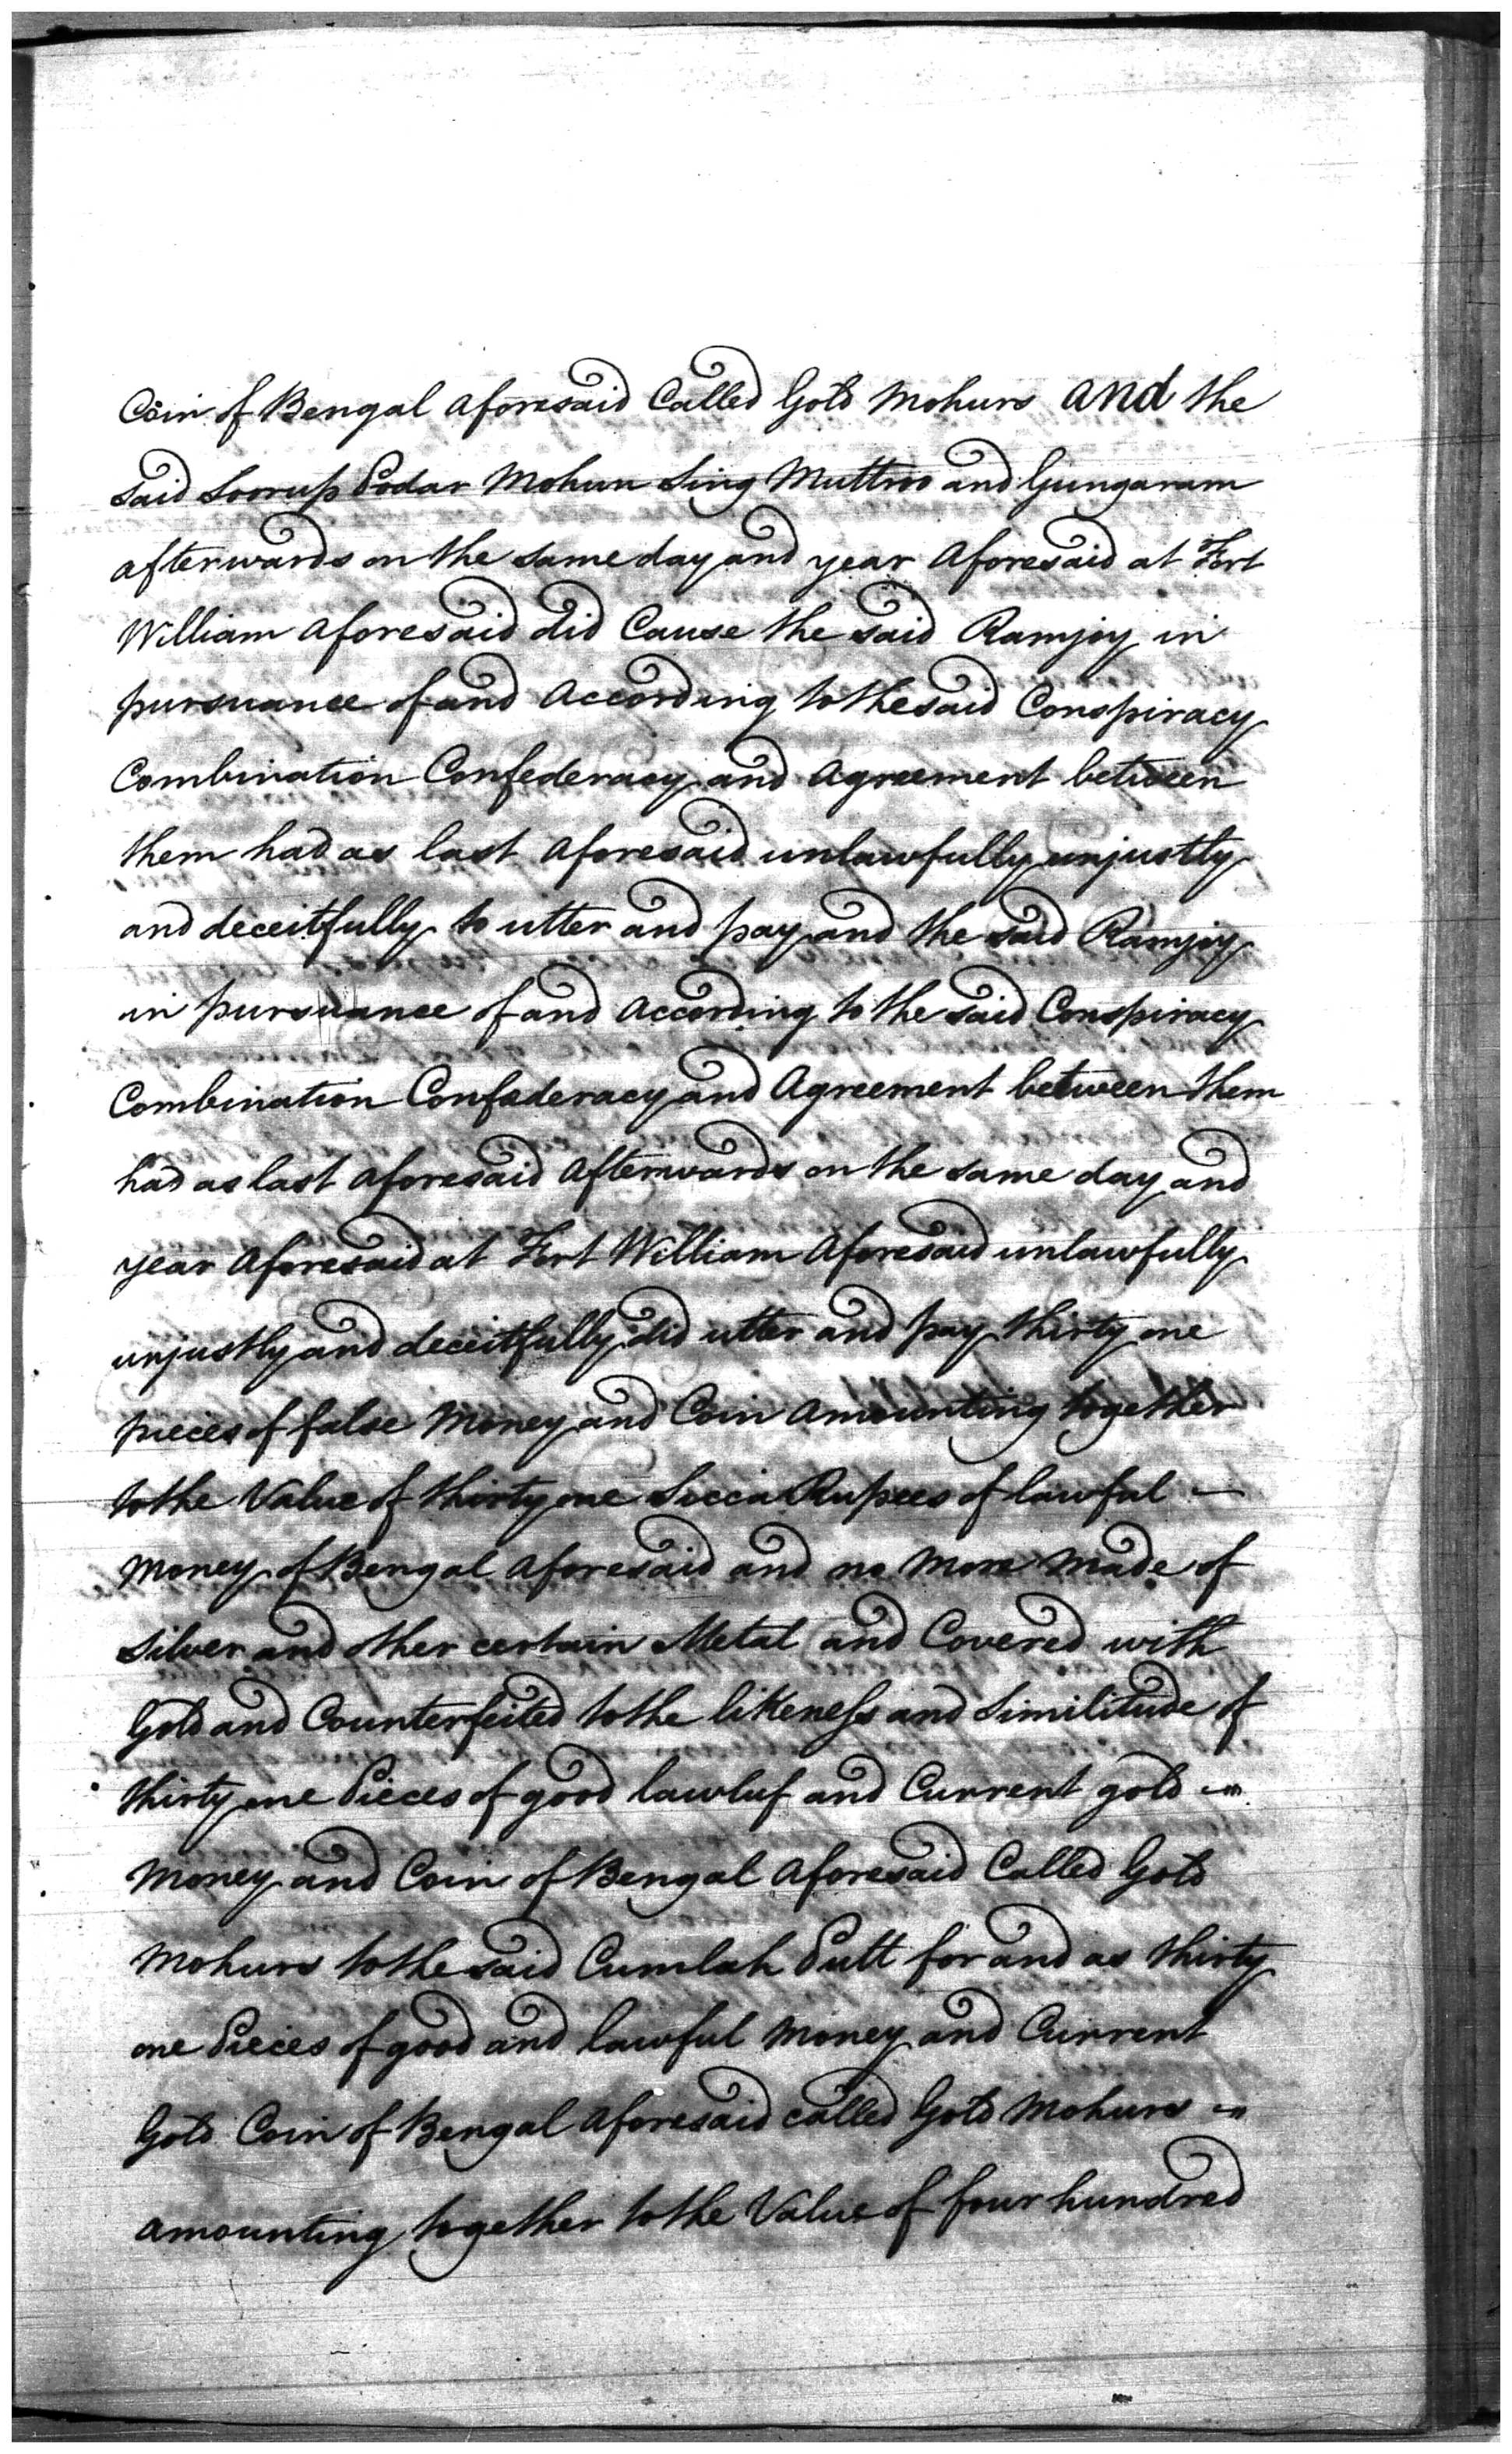 Coin of Bengal aforesaid Called Gold Mohurs and the
said Soorup Podar Mohun Sing Muttroo and Gungaram
afterwards on the same day and year aforesaid at Fort
William aforesaid did Cause the said Ramjoy in
pursuance of and According to the said Conspiracy
Combination Confederacy and Agreement between
them had as last aforesaid unlawfully unjustly
and deceitfully to utter and pay and the said Ramjoy
in pursuance of and According to the said Conspiracy
Combination Confederacy and Agreement between them
had as last aforesaid afterwards on the same day and
year aforesaid at Fort William aforesaid unlawfully
unjustly and deceitfully did utter and pay thirty one
pieces of false Money and Coin amounting together
to the Value of thirty one Sicca Rupees of lawful
Money of Bengal aforesaid and no More Made of
silver and other certain Metal and Covered with
Gold and Counterfeited to the likeness and Similitude of
thirty one Pieces of good lawluf and Current gold
Money and Coin of Bengal aforesaid Called Gold
Mohurs to the said Cumlah Putt for and as thirty
one Pieces of good and lawful Money and Current
Gold Coin of Bengal aforesaid called Gold Mohurs
amounting together to the Value of four hundred